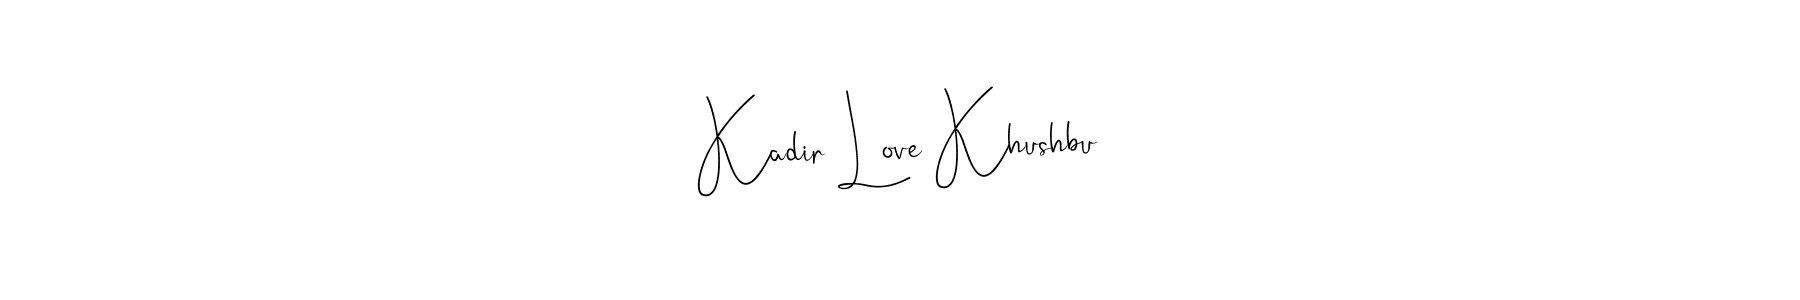 Kadir Love Khushbu